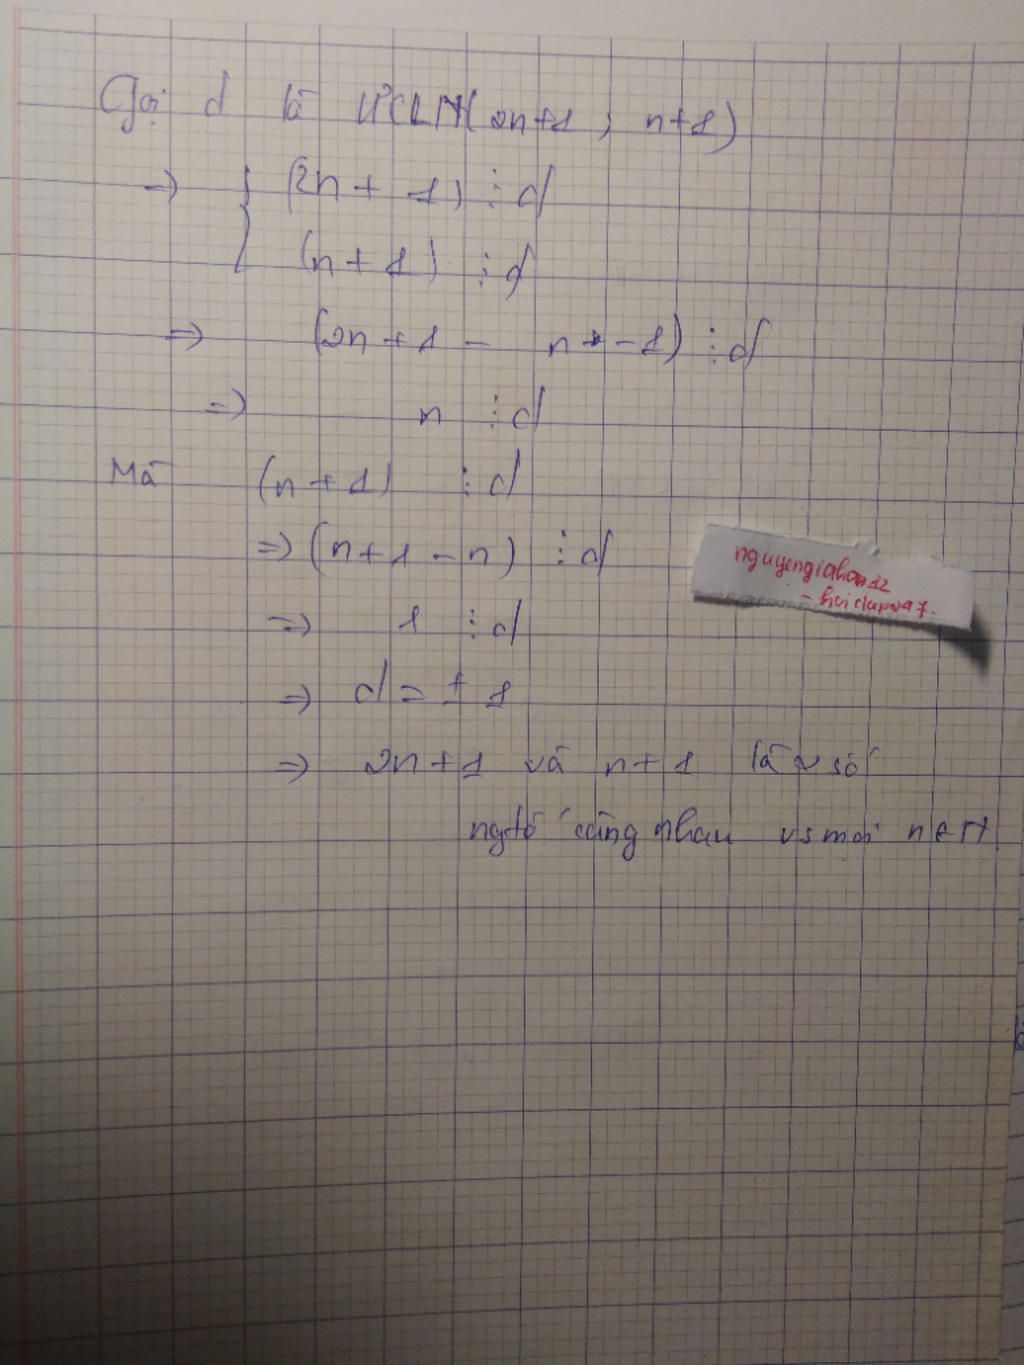 Gọi d là ƯCLN(2n+1 ; n+1)
=> { (2n + 1) ⋮ d
(n + 1) ⋮ d
=> (2n + 1 - n - 1) ⋮ d
=> n ⋮ d
Mà (n + 1) ⋮ d
=> (n + 1 - n) ⋮ d
=> 1 ⋮ d
=> d = ± 1
=> 2n + 1 và n + 1 là 2 số
ngtố cùng nhau vs mọi n ∈ N
nguyengiahan12
- hoidap247.